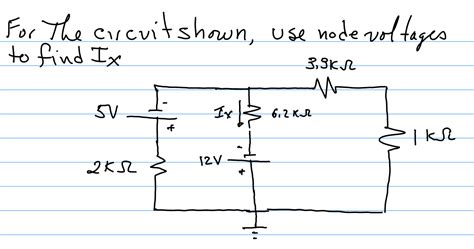 For The circuit shown, use node voltages
to find Ix
3.3KΩ
5V
-
+
Ix
6.2KΩ
1KΩ
2KΩ
12V
-
+